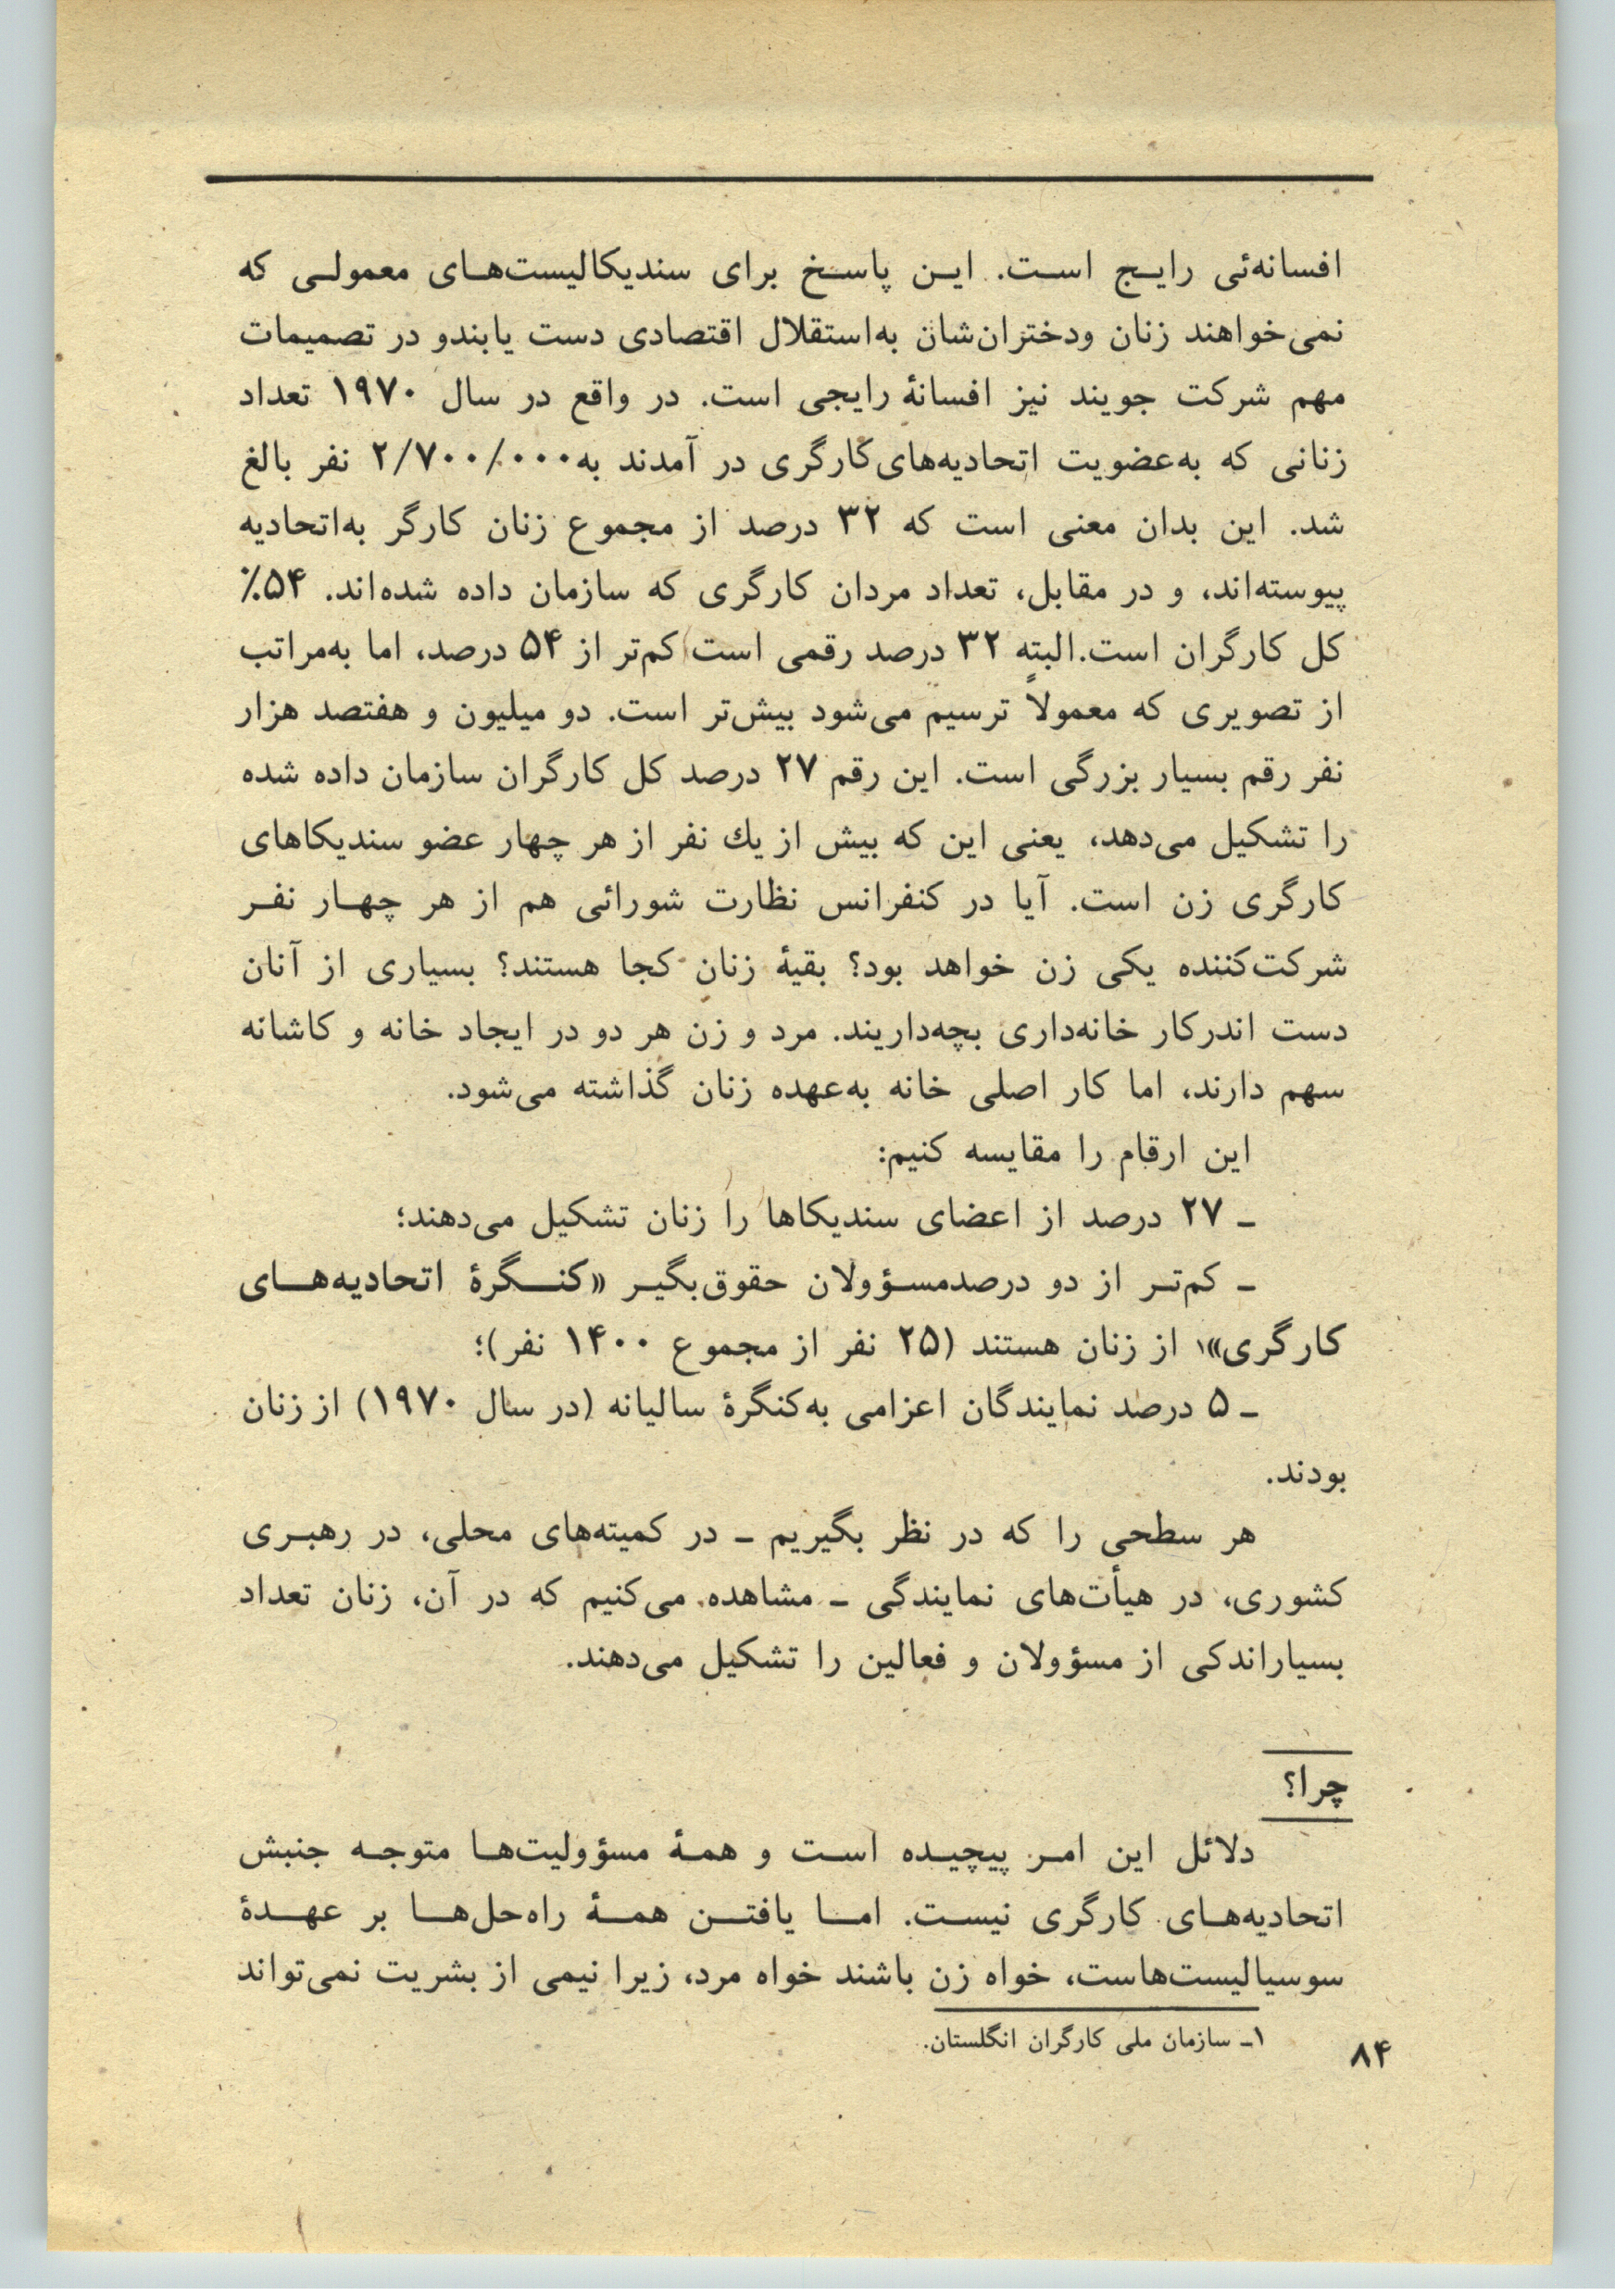 افسانه‌ئی رایج است. این پاسخ برای سندیکالیست‌های معمولی که
نمی‌خواهند زنان ودختران‌شان به‌استقلال اقتصادی دست یابندو در تصمیمات
مهم شرکت جویند نیز افسانهٔ رایجی است. در واقع در سال ۱۹۷۰ تعداد
زنانی که به‌عضویت اتحادیه‌های‌کارگری در آمدند به۲/۷۰۰/۰۰۰ نفر بالغ
شد. این بدان معنی است که ۳۲ درصد از مجموع زنان کارگر به‌اتحادیه
پیوسته‌اند، و در مقابل، تعداد مردان کارگری که سازمان داده شده‌اند. ۵۴٪
کل کارگران است.البته ۳۲ درصد رقمی است کم‌تر از ۵۴ درصد، اما به‌مراتب
از تصویری که معمولاً ترسیم می‌شود بیش‌تر است. دو میلیون و هفتصد هزار
نفر رقم بسیار بزرگی است. این رقم ۲۷ درصد کل کارگران سازمان داده شده
را تشکیل می‌دهد، یعنی این که بیش از یك نفر از هر چهار عضو سندیکاهای
کارگری زن است. آیا در کنفرانس نظارت شورائی هم از هر چهار نفر
شرکت‌کننده یکی زن خواهد بود؟ بقیهٔ زنان کجا هستند؟ بسیاری از آنان
دست اندرکار خانه‌داری بچه‌داریند. مرد و زن هر دو در ایجاد خانه و کاشانه
سهم دارند، اما کار اصلی خانه به‌عهده زنان گذاشته می‌شود.
این ارقام را مقایسه کنیم:
ـ ۲۷ درصد از اعضای سندیکاها را زنان تشکیل می‌دهند؛
ـ کم‌تر از دو درصدمسؤولان حقوق‌بگیر «کنگرهٔ اتحادیه‌های
کارگری»۱ از زنان هستند (۲۵ نفر از مجموع ۱۴۰۰ نفر)؛
ـ ۵ درصد نمایندگان اعزامی به‌کنگرهٔ سالیانه (در سال ۱۹۷۰) از زنان
بودند.
هر سطحی را که در نظر بگیریم ـ در کمیته‌های محلی، در رهبری
کشوری، در هیأت‌های نمایندگی ـ مشاهده می‌کنیم که در آن، زنان تعداد
بسیاراندکی از مسؤولان و فعالین را تشکیل می‌دهند.
چرا؟
دلائل این امر پیچیده است و همهٔ مسؤولیت‌ها متوجه جنبش
اتحادیه‌های کارگری نیست. اما یافتن همهٔ راه‌حل‌ها بر عهدهٔ
سوسیالیست‌هاست، خواه زن باشند خواه مرد، زیرا نیمی از بشریت نمی‌تواند
۱ـ سازمان ملی کارگران انگلستان.
۸۴